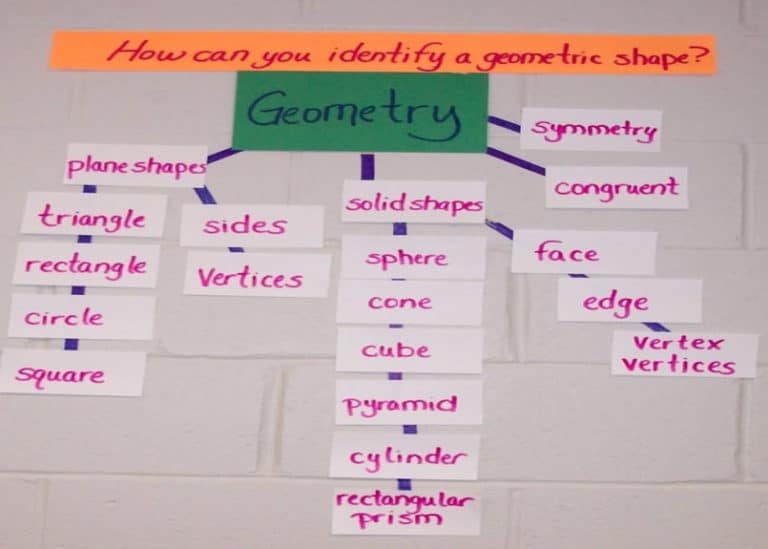 How can you identify a geometric shape?
Geometry
symmetry
congruent
plane shapes
triangle
rectangle
circle
square
sides
Vertices
solid shapes
sphere
cone
cube
pyramid
cylinder
rectangular
prism
face
edge
vertex
vertices